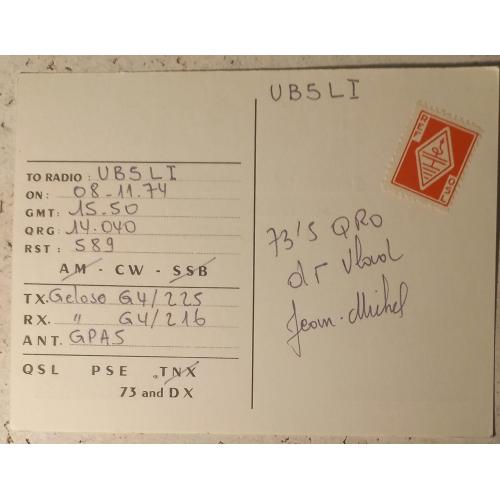 UB5LI
TO RADIO : UB5LI
ON : 08-11.74
GMT : 15.50
QRG : 14.040
RST : 589
AM - CW - SSB
TX. Geloso G4/225
RX. " G4/216
ANT. GPA5
QSL PSE TNX
73 and DX
REF
QSL
73'S QRO
dr Vlad
Jean-Michel